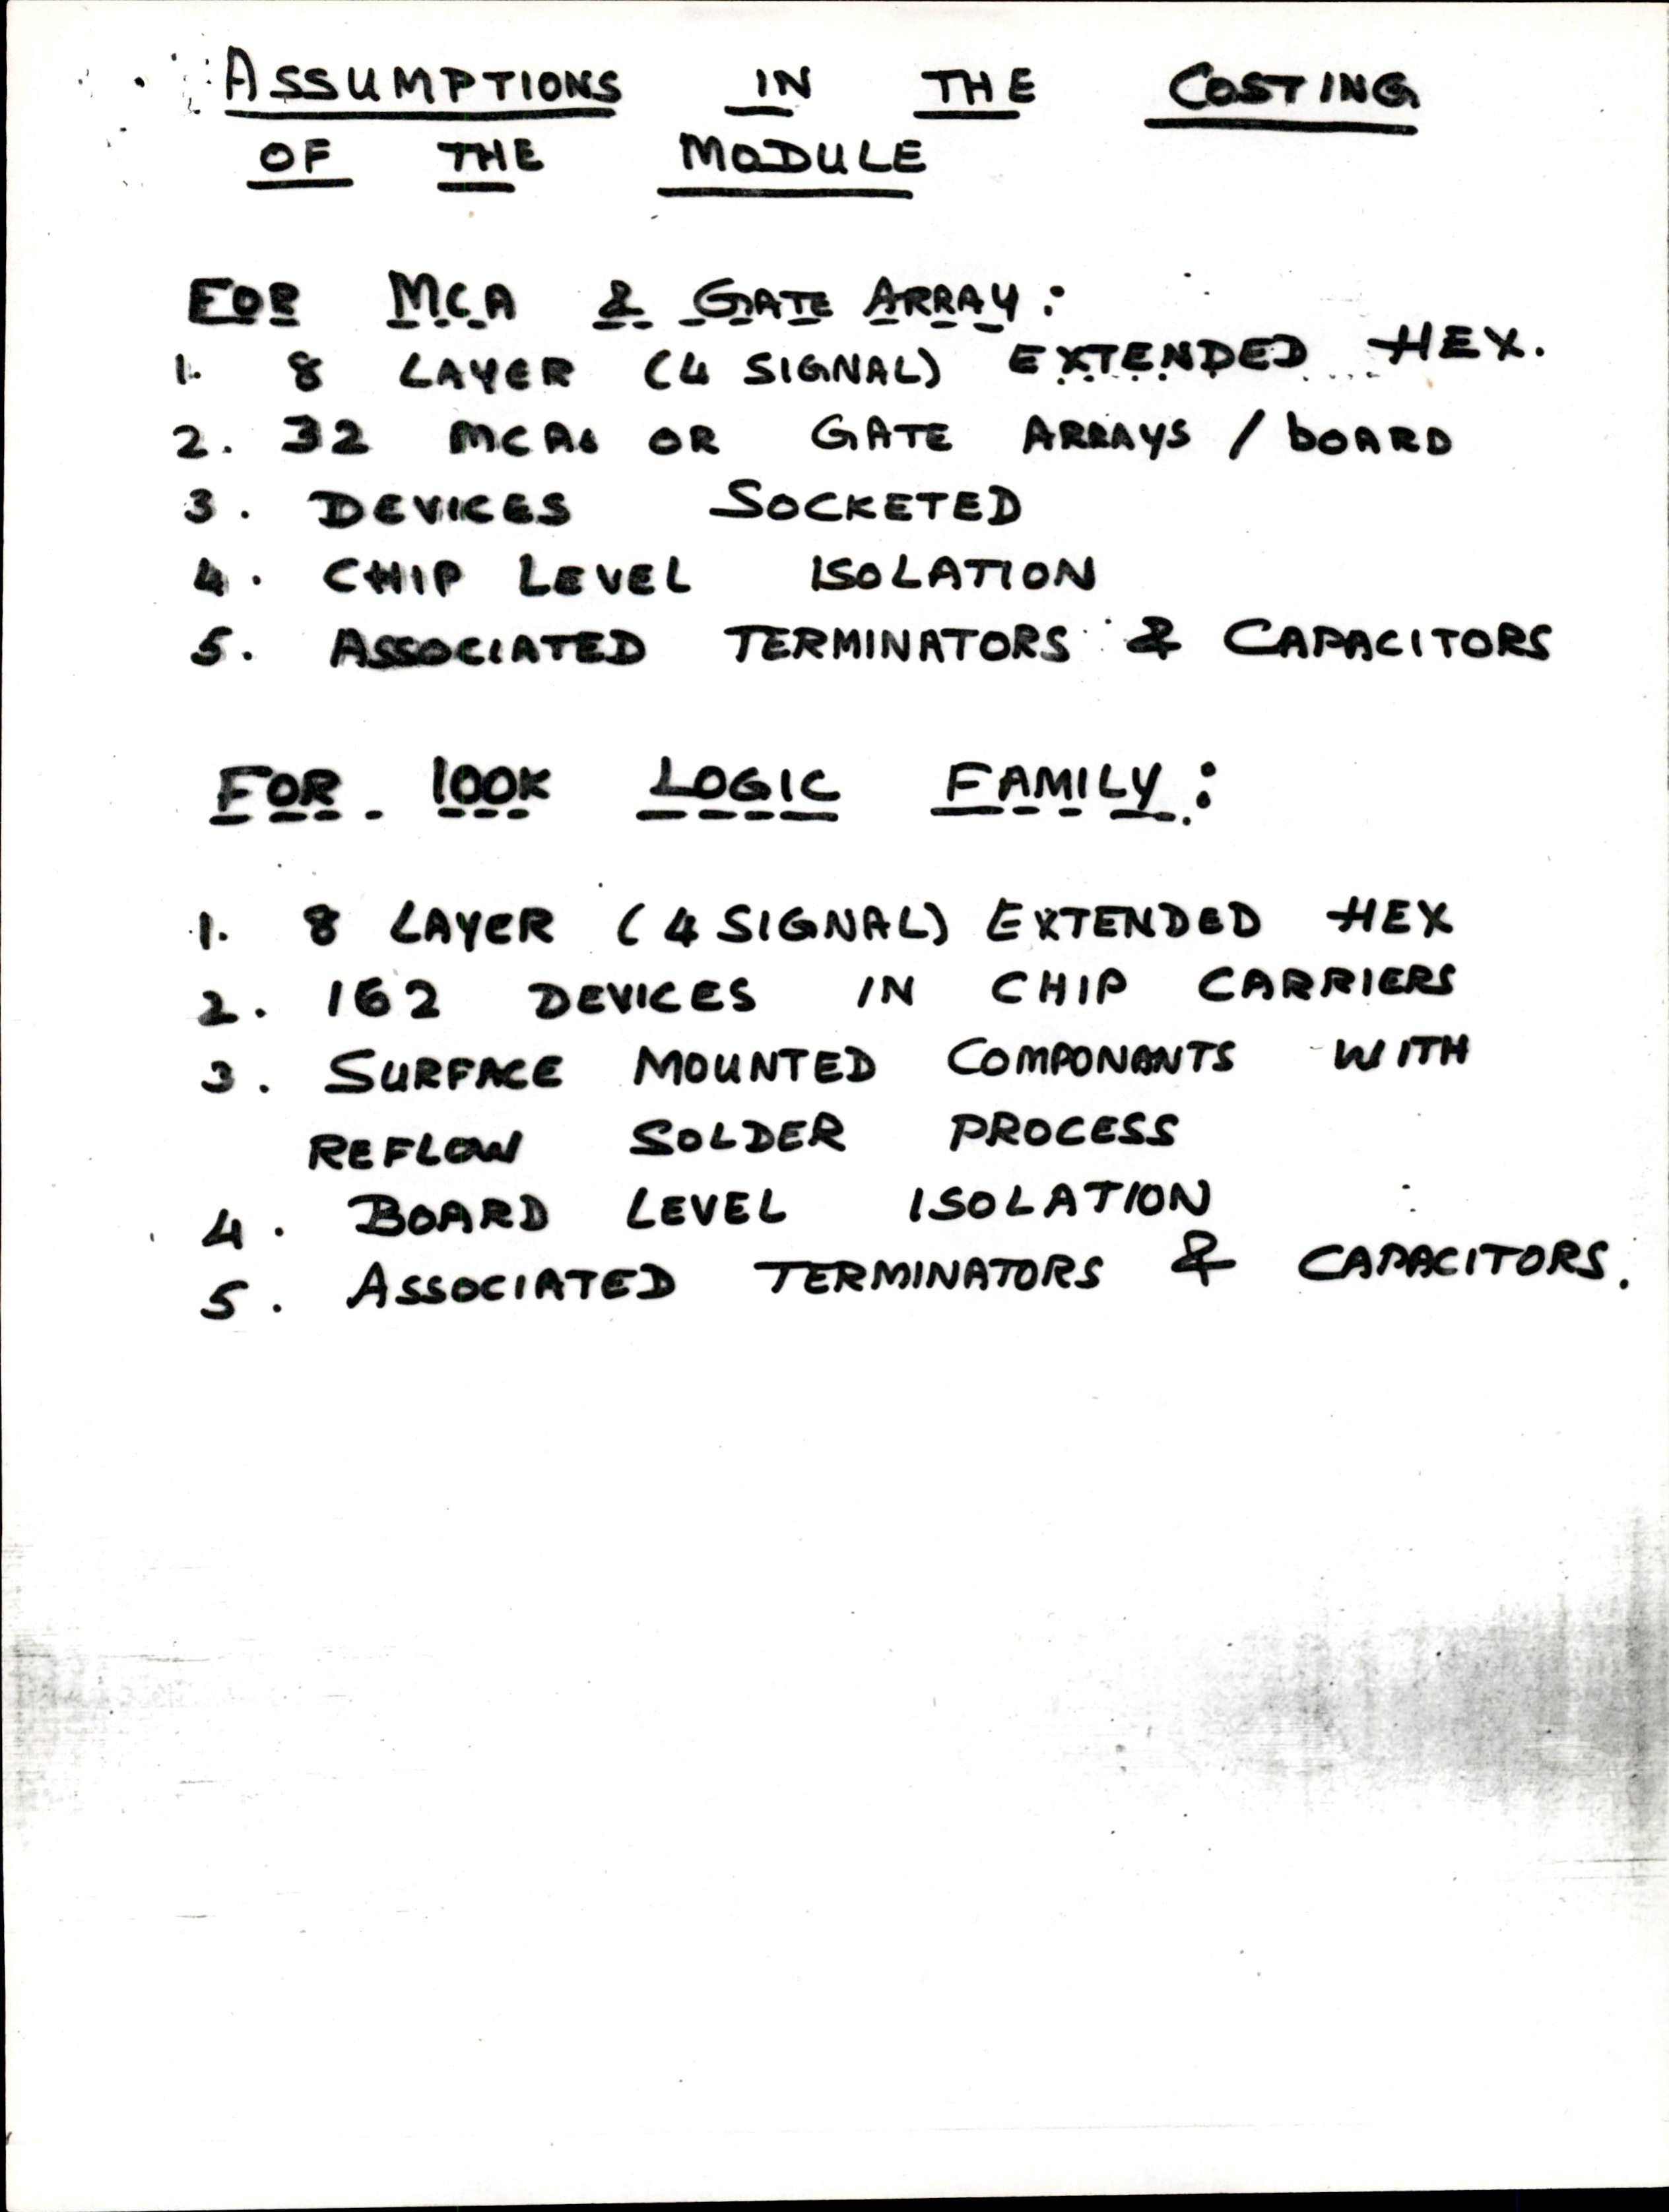 ASSUMPTIONS IN THE COSTING
OF THE MODULE
FOR MCA & GATE ARRAY:
1. 8 LAYER (4 SIGNAL) EXTENDED HEX.
2. 32 MCAs OR GATE ARRAYS / bOARD
3. DEVICES SOCKETED
4. CHIP LEVEL ISOLATION
5. ASSOCIATED TERMINATORS & CAPACITORS
FOR 100K LOGIC FAMILY:
1. 8 LAYER (4 SIGNAL) EXTENDED HEX
2. 162 DEVICES IN CHIP CARRIERS
3. SURFACE MOUNTED COMPONANTS WITH
REFLOW SOLDER PROCESS
4. BOARD LEVEL ISOLATION
5. ASSOCIATED TERMINATORS & CAPACITORS.